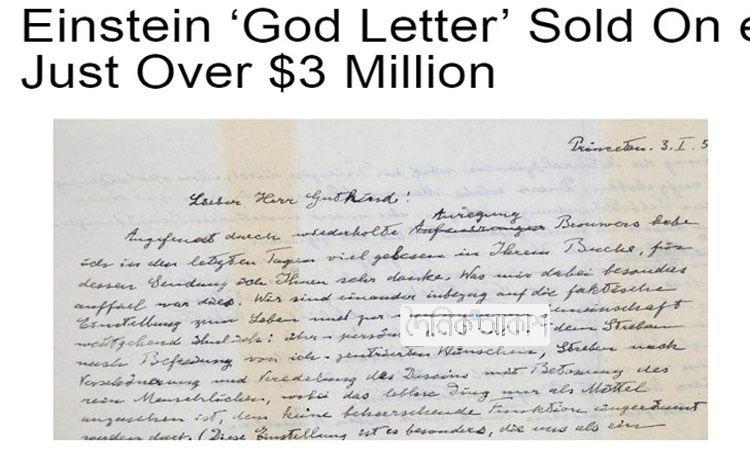 Einstein ‘God Letter’ Sold On e
Just Over $3 Million
Princeton. 3. I. 5
Lieber Herr Gutkind!
Anregung
Angefeuert durch wiederholte Brouwers habe
ich in den letzten Tagen viel gelesen in Ihrem Buche, für
dessen Sendung ich Ihnen sehr danke. Was mir dabei besonders
auffiel war dies. Wir sind einander inbezug auf die faktische
Einstellung zum Leben und zur meinschaft
weitgehend ähnlich: über-persön dem Streben
দৈনিক আলাপ
nach Befreiung von ich-zentrierten Wünschen, Streben nach
Verschönerung und Veredelung des Daseins mit Betonung des
rein Menschlichen, wobei das leblose Ding nur als Mittel
anzusehen ist, dem keine beherrschende Funktion eingeräumt
werden darf. (Diese Einstellung ist es besonders, die uns als ein